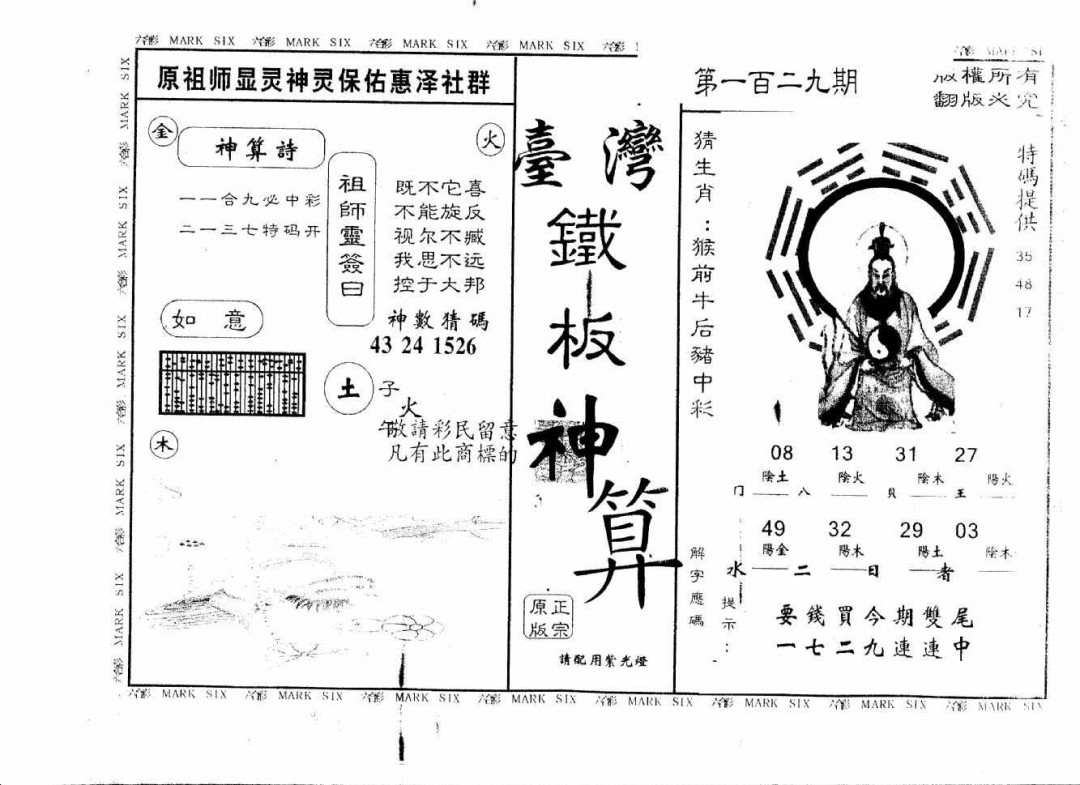 六合彩 MARK SIX 六合彩 MARK SIX 六合彩 MARK SIX 六合彩 MARK SIX 六合彩
原祖师显灵神灵保佑惠泽社群
金
神算詩
一一合九必中彩
二一三七特码开
火
祖師靈簽曰
既不它喜
不能旋反
视尔不臧
我思不远
控于大邦
神數猜碼
43 24 1526
如意
土
子
火
午
敬請彩民留意
凡有此商標的
木
臺灣
鐵
板
神
算
正宗
原版
請配用紫光燈
第一百二九期
版權所有
翻版必究
猜生肖：猴前牛后豬中彩
特碼提供
35
48
17
08 13 31 27
陰土 陰火 陰木 陽火
冂 八 貝 王
49 32 29 03
陽金 陽木 陽土 陰木
水 二 日 者
解字應碼
提示：
要錢買今期雙尾
一七二九連連中
六合彩 MARK SIX 六合彩 MARK SIX 六合彩 MARK SIX 六合彩 MARK SIX 六合彩 MARK SIX 六合彩 MARK SIX 六合彩 MARK SIX 六合彩 MARK SIX